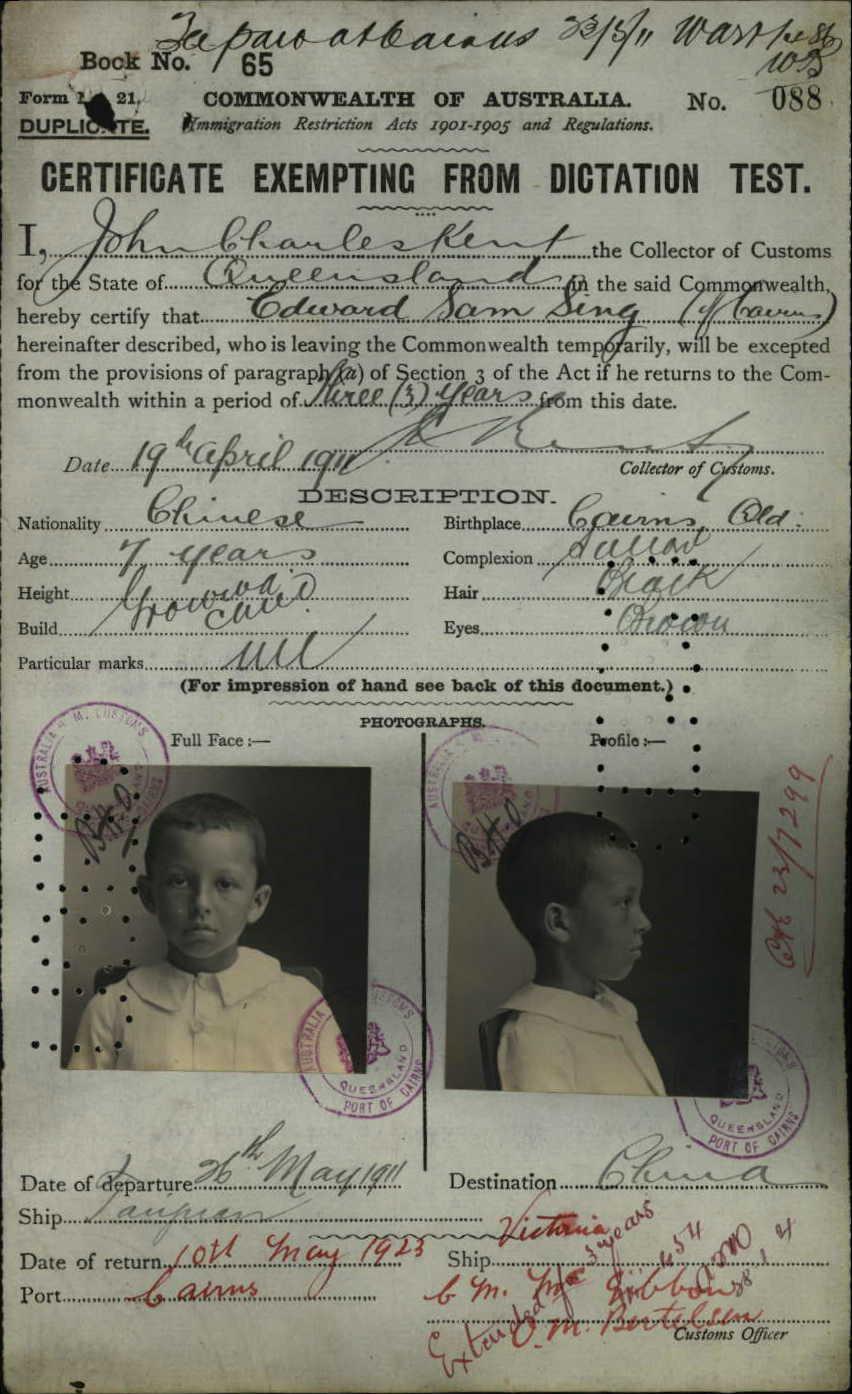 23/5/11
Book No. 65
Form 21. COMMONWEALTH OF AUSTRALIA. No. 088
DUPLICATE. Immigration Restriction Acts 1901-1905 and Regulations.
CERTIFICATE EXEMPTING FROM DICTATION TEST.
I, John Charles Kent the Collector of Customs
for the State of Queensland in the said Commonwealth,
hereby certify that Edward Sam Sing (of Cairns)
hereinafter described, who is leaving the Commonwealth temporarily, will be excepted
from the provisions of paragraph (a) of Section 3 of the Act if he returns to the Com-
monwealth within a period of three (3) years from this date.
Date 19th April 1911
Collector of Customs.
DESCRIPTION.
Nationality Chinese Birthplace Cairns, Qld.
Age 7 years Complexion Sallow
Height Growing Hair Black
Build child Eyes Brown
Particular marks Nil
(For impression of hand see back of this document.)
PHOTOGRAPHS.
Full Face :— Profile :—
AUSTRALIA H. M. CUSTOMS
AUSTRALIA CUSTOMS QUEENSLAND PORT OF CAIRNS
QUEENSLAND PORT OF CAIRNS
23/7299
Date of departure 26th May 1911 Destination China
Ship Taiyuan
Date of return 10th May 1923 Ship Victoria
Port Cairns
Extended 3 years
Customs Officer